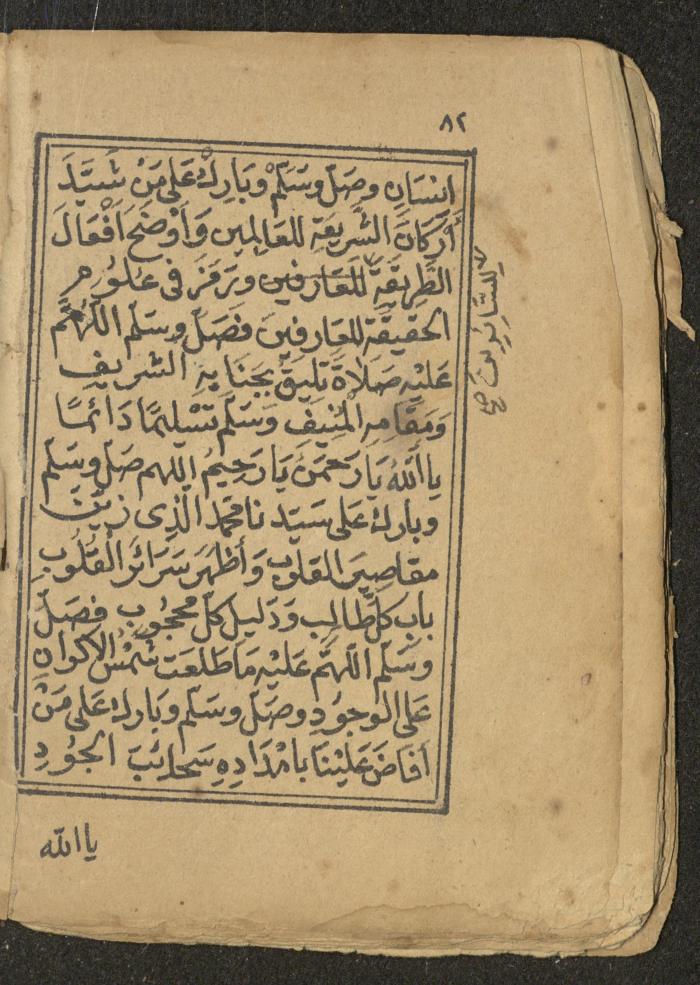 ٨٢
انسَانِ وصَلّ وسَلّمْ وبَارِكْ عَلى مَنْ شَيَّدَ
أَرْكَانَ الشَّرِيعَةِ للعَالِمِين وَأَوْضَحَ اَفْعَالَ
الطَّرِيقَةِ للعَارفين ورَمَزَ فى عُلُومِ
الحَقيقَةِ للعَارفِينَ فَصَلّ وسَلّم اللّهُمَّ
عَلَيْهِ صَلَاةً تَليقُ بجَنَابِهِ الشَّريفِ
وَمَقَامِهِ الْمُنِيفِ وَسَلّم تَسْليمًا دَائمًا
يا اَللّٰهُ يَا رَحمَنُ يَا رَحِيمُ اللهم صَلّ وسَلّم
وبارك عَلى سَيّدنا محمّد الَّذِى زَيَّنَ
مقاصِيرَ القلوبِ وَأَظْهَرَ سَرَائرَ الْغُيُوبِ
باب كلّ طَالبٍ وَدَليل كلّ محْجُوبٍ فصَلّ
وسَلّم اللّهُمَّ عَلَيْهِ مَا طَلَعَتْ شَمْسُ الاَكوانِ
عَلى الوُجُودِ وصَلّ وسَلّم وبَارك عَلى مَنْ
أفَاضَ عَلَيْنَا بامْدَادِهِ سَحَائبَ الجُودِ
للسَّائِرِينَ صح
يا الله